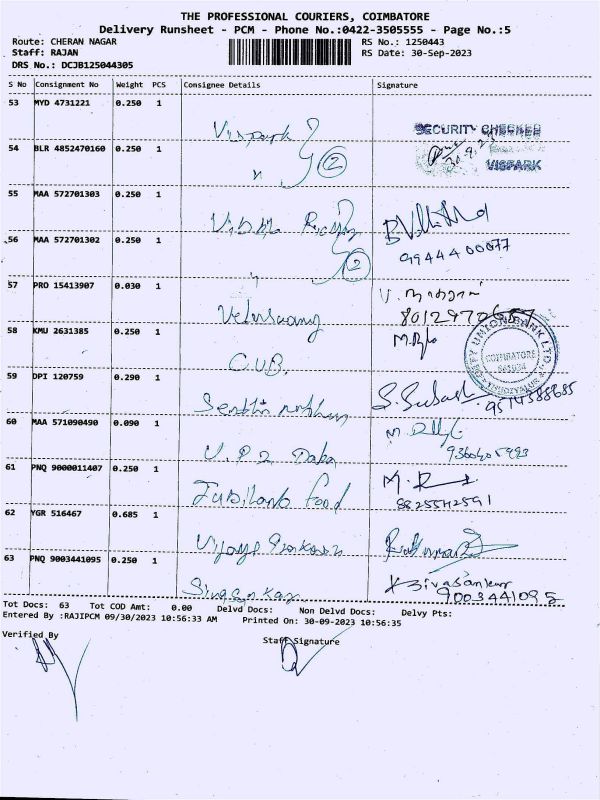 THE PROFESSIONAL COURIERS, COIMBATORE
Delivery Runsheet - PCM - Phone No.:0422-3505555 - Page No.:5
Route: CHERAN NAGAR
RS No.: 1250443
Staff: RAJAN
RS Date: 30-Sep-2023
DRS No.: DCJB125044305
S No Consignment No Weight PCS Consignee Details Signature
53 MYD 4731221 0.250 1
Vispark
SECURITY CHECKED
VISPARK
54 BLR 4852470160 0.250 1
2
55 MAA 572701303 0.250 1
56 MAA 572701302 0.250 1
9944400077
2
57 PRO 15413907 0.030 1
58 KMU 2631385 0.250 1
C.U.B.
CITY UNION BANK LTD.
COIMBATORE
59 DPI 120759 0.290 1
S. Subash
60 MAA 571090490 0.090 1
61 PNQ 9000011407 0.250 1
Jubilant Food
8825542591
62 YGR 516467 0.685 1
63 PNQ 9003441095 0.250 1
Sivasankar
Sivasankar
9003441095
Tot Docs: 63 Tot COD Amt: 0.00 Delvd Docs: Non Delvd Docs: Delvy Pts:
Entered By :RAJIPCM 09/30/2023 10:56:33 AM Printed On: 30-09-2023 10:56:35
Verified By
Staff Signature